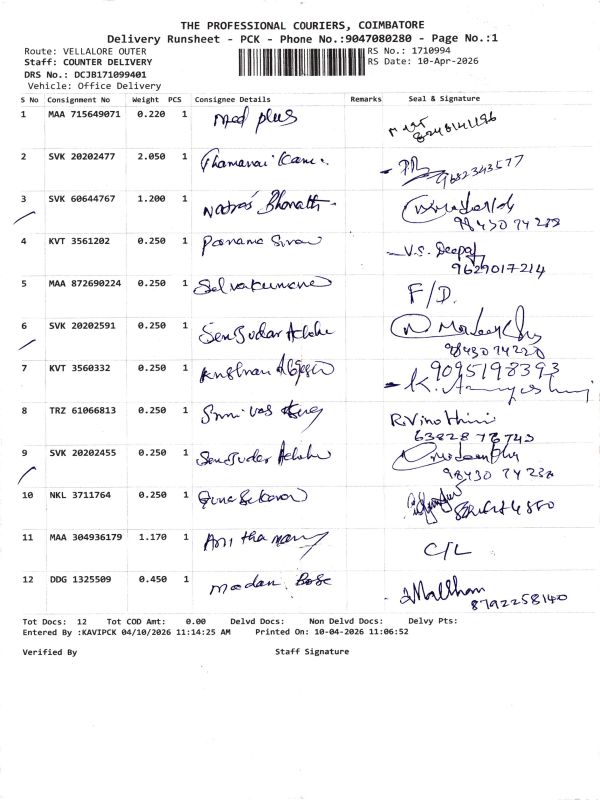 THE PROFESSIONAL COURIERS, COIMBATORE
Delivery Runsheet - PCK - Phone No.:9047080280 - Page No.:1
Route: VELLALORE OUTER RS No.: 1710994
Staff: COUNTER DELIVERY RS Date: 10-Apr-2026
DRS No.: DCJB171099401
Vehicle: Office Delivery
S No Consignment No Weight PCS Consignee Details Remarks Seal & Signature
1 MAA 715649071 0.220 1 Med plus
2 SVK 20202477 2.050 1 9682343577
3 SVK 60644767 1.200 1 Bharath
98430 74238
4 KVT 3561202 0.250 1 V.S. Deepak
9629017214
5 MAA 872690224 0.250 1 Selvakumar F/D.
6 SVK 20202591 0.250 1
98430 74220
7 KVT 3560332 0.250 1 9095198393
8 TRZ 61066813 0.250 1 R.Vinothini
63828 78743
9 SVK 20202455 0.250 1
98430 74238
10 NKL 3711764 0.250 1
11 MAA 304936179 1.170 1 C/L
12 DDG 1325509 0.450 1 Madan. Bose
8792258140
Tot Docs: 12 Tot COD Amt: 0.00 Delvd Docs: Non Delvd Docs: Delvy Pts:
Entered By :KAVIPCK 04/10/2026 11:14:25 AM Printed On: 10-04-2026 11:06:52
Verified By Staff Signature